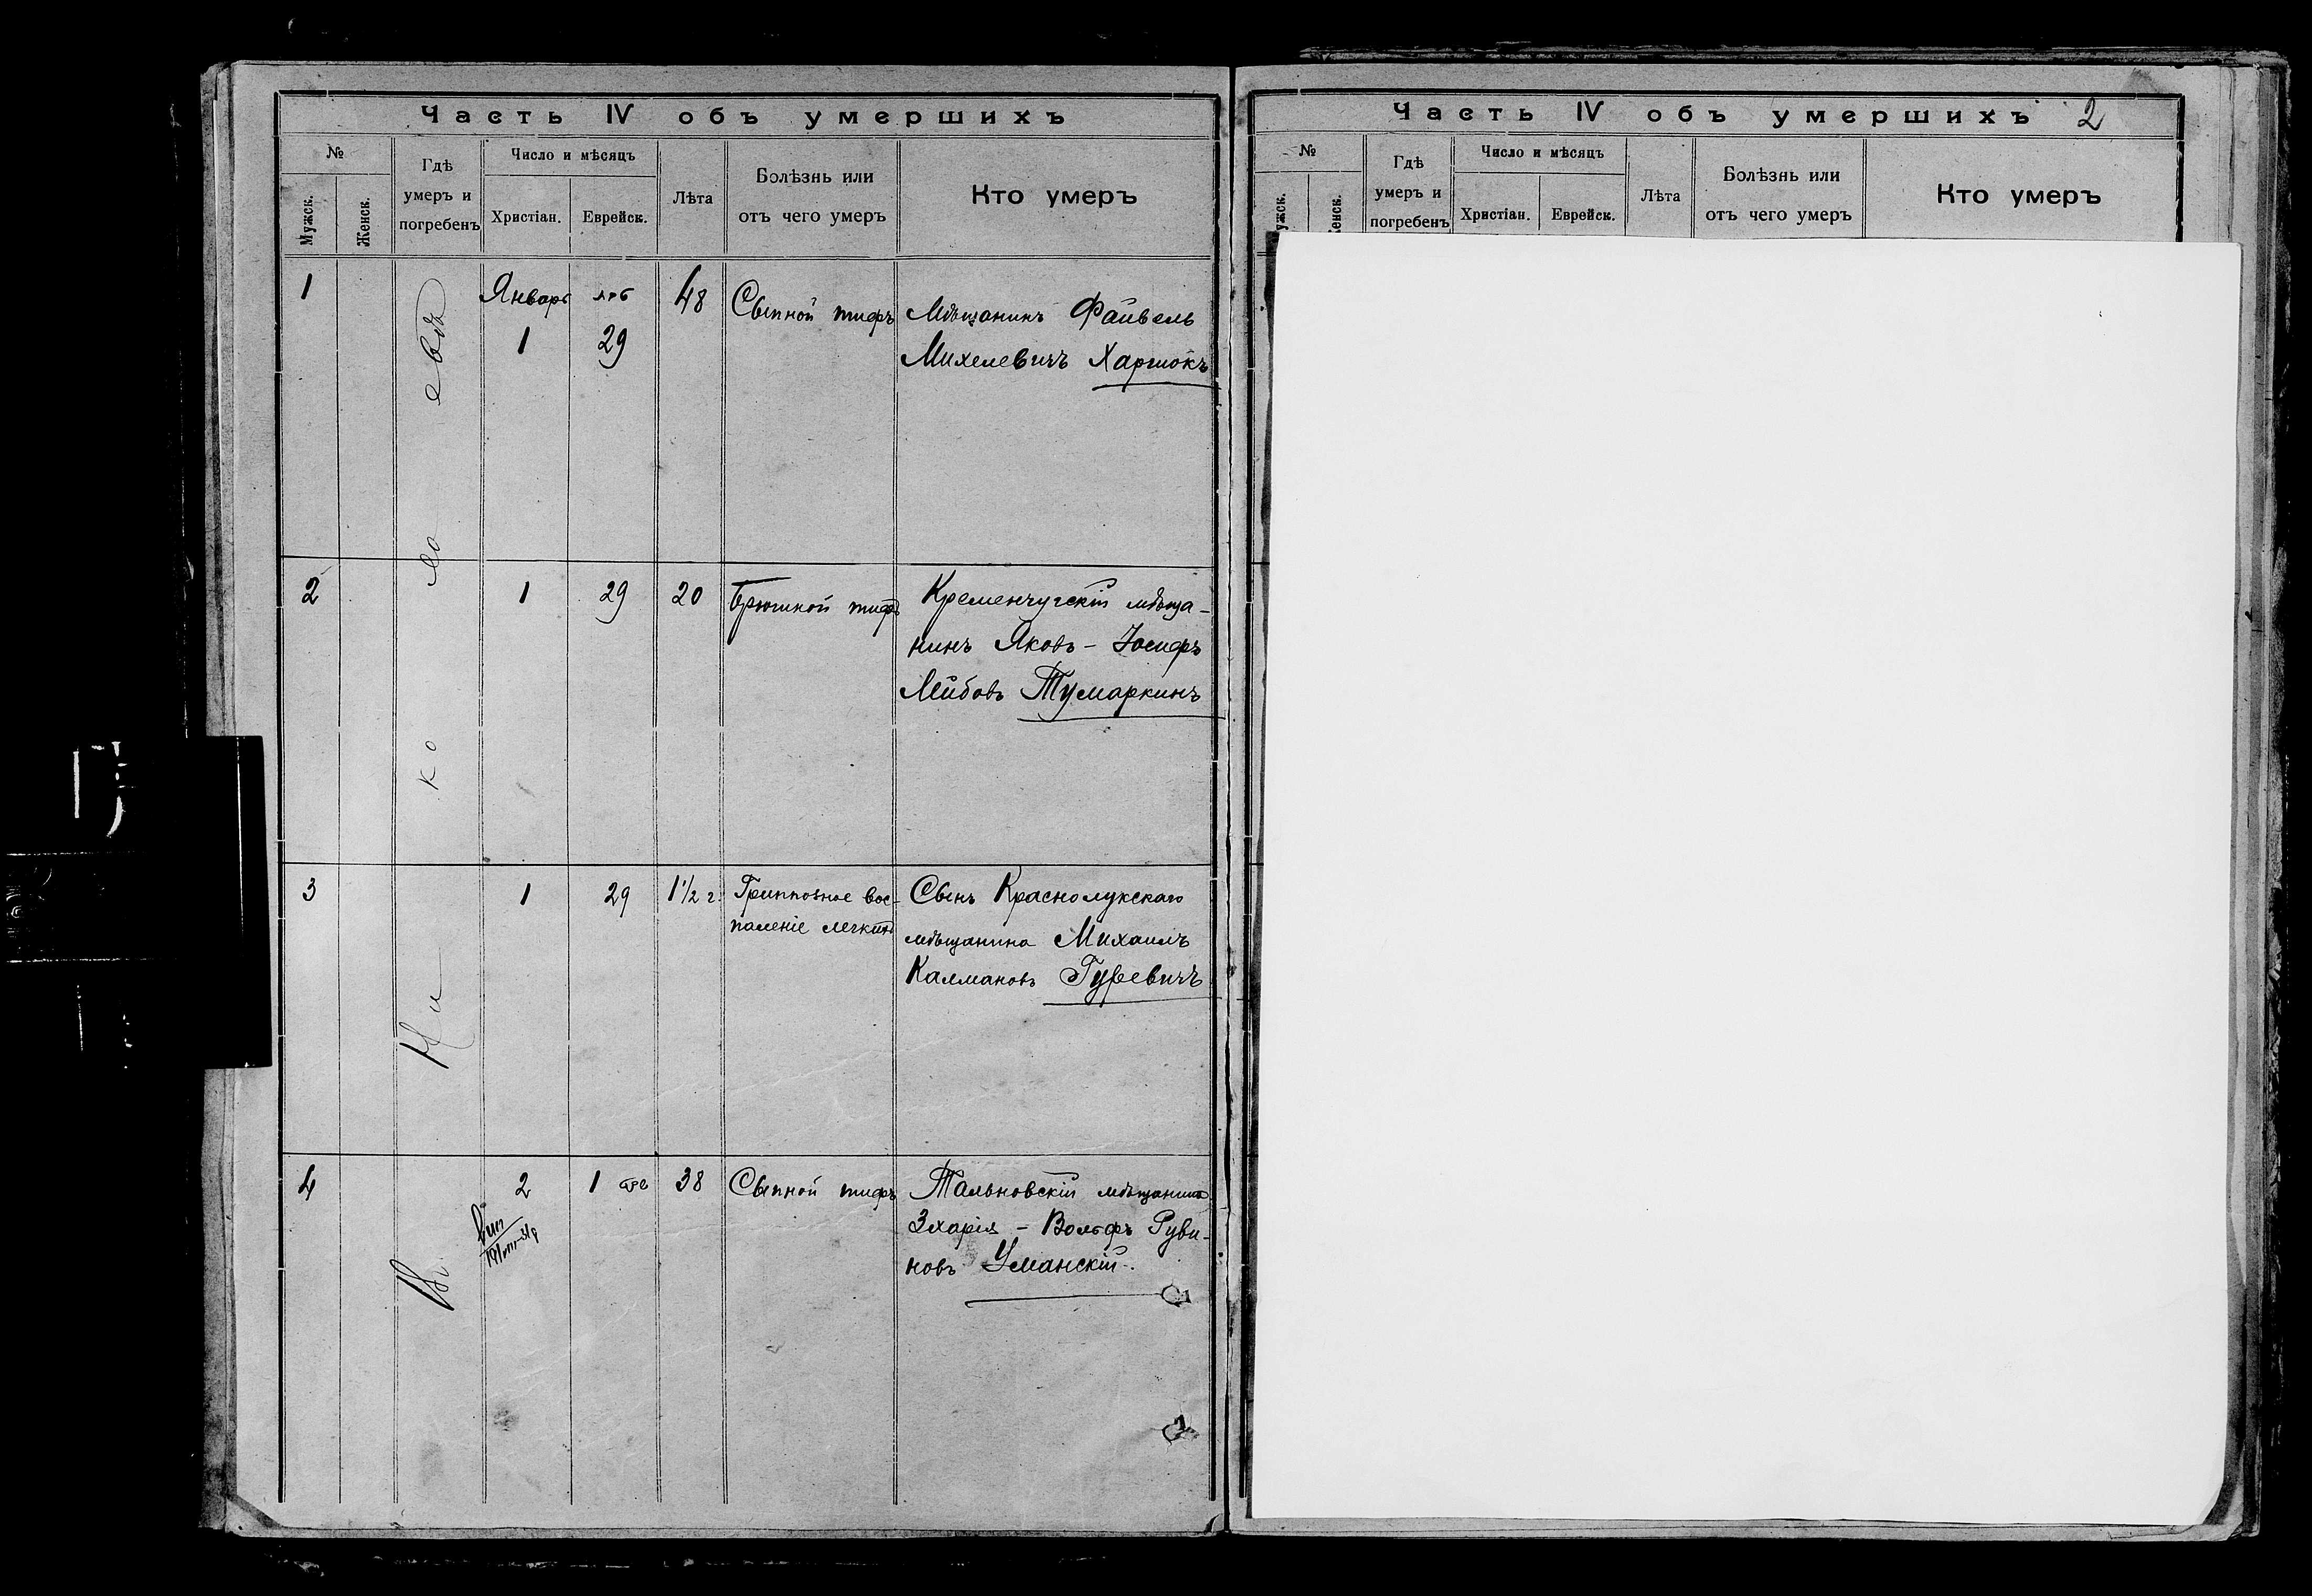 Часть IV объ умершихъ
№
Мужск.
Женск.
Гдѣ
умеръ и
погребенъ
Число и мѣсяцъ
Христіан.
Еврейск.
Лѣта
Болѣзнь или
отъ чего умеръ
Кто умеръ
Въ Николаевѣ
1
Январь
1
29
48
Сыпной тифъ
Мѣщанинъ Файвель
Михелевичъ
2
1
29
20
Брюшной тифъ
Кременчугскій мѣща-
нинъ Яковъ - Іосифъ
Лейбовъ Тумаркинъ
3
1
29
1½ г.
Гриппозное вос-
паленіе легкихъ
Сынъ Краснолукскаго
мѣщанина Михаилъ
Калмановъ Гуревичъ
4
2
1
38
Сыпной тифъ
Тальновскій мѣщанинъ
Зхарія - Вольфъ Руви-
новъ Уманскій.
Часть IV объ умершихъ 2
№
ужск.
енск.
Гдѣ
умеръ и
погребенъ
Число и мѣсяцъ
Христіан.
Еврейск.
Лѣта
Болѣзнь или
отъ чего умеръ
Кто умеръ